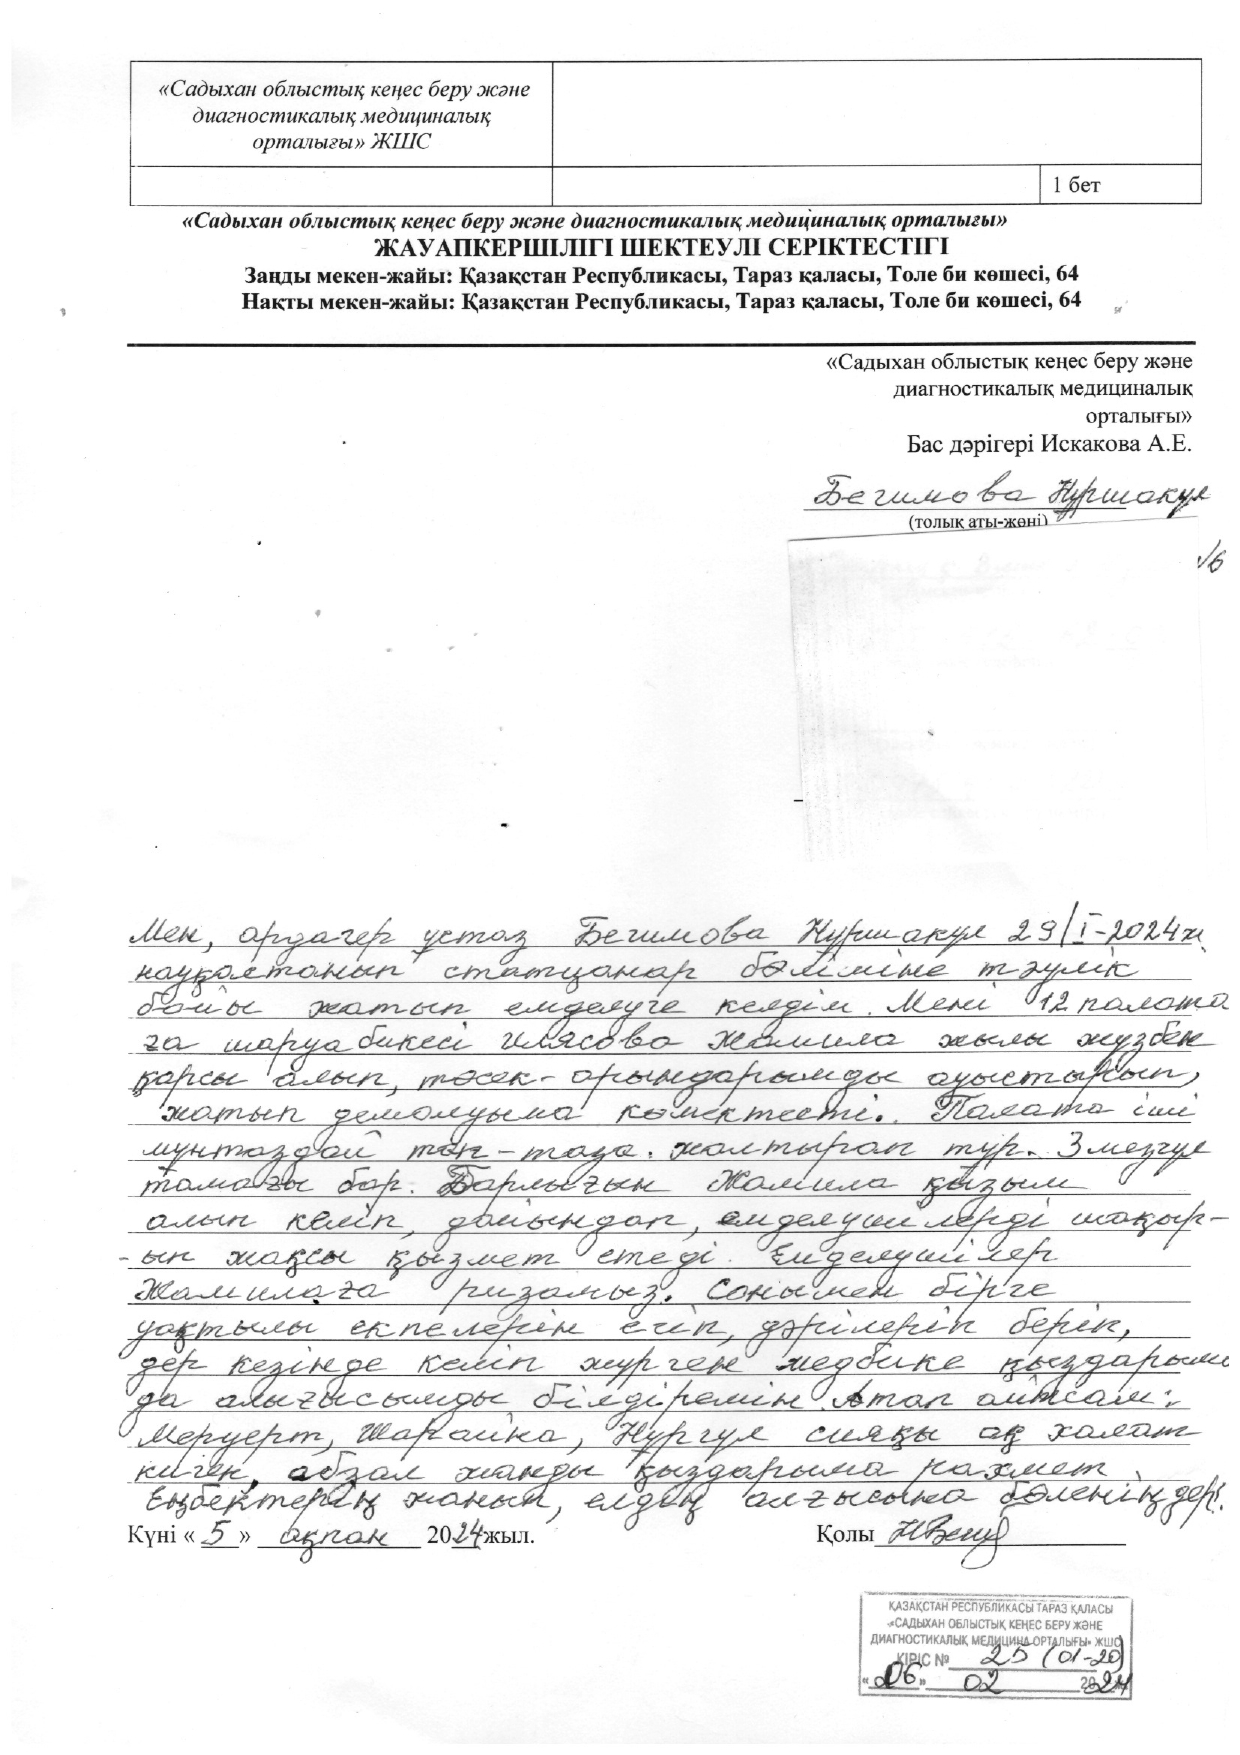 «Садыхан облыстық кеңес беру және
диагностикалық медициналық
орталығы» ЖШС
1 бет
«Садыхан облыстық кеңес беру және диагностикалық медициналық орталығы»
ЖАУАПКЕРШІЛІГІ ШЕКТЕУЛІ СЕРІКТЕСТІГІ
Заңды мекен-жайы: Қазақстан Республикасы, Тараз қаласы, Толе би көшесі, 64
Нақты мекен-жайы: Қазақстан Республикасы, Тараз қаласы, Толе би көшесі, 64
«Садыхан облыстық кеңес беру және
диагностикалық медициналық
орталығы»
Бас дәрігері Искакова А.Е.
Бегимова Нұршакул
(толық аты-жөні)
Мен, ардагер ұстаз Бегимова Нұршакул 29/I-2024ж
науқастанып статцонар бөліміне тәулік
бойы жатып емделуге келдім. Мені 12 палата
ға шаруабикесі Илясова Жамила жылы жүзбен
қарсы алып, төсек-орындарымды ауыстырып,
жатып демалуыма көмектесті. Палата іші
мұнтаздай тап-таза. жалтырап тұр. 3 мезгіл
тамағы бар. Барлығын Жамила қызым
алып келіп, дайындап, емделушілерді шақыр-
-ып жақсы қызмет етеді. Емделушілер
Жамилаға ризамыз. Сонымен бірге
уақтылы екпелерін егіп, дәрілерін беріп,
дер кезінде келіп жүрген медбике қыздарыма
да алығысымды білдіремін. Атап айтсам:
Меруерт, Жарайна, Нұргүл сияқы ақ халат
киген, абзал жанды қыздарыма рахмет.
Еңбектерің жанып, елдің алғысына бөленіңдер!
Күні «5» ақпан 2024жыл. Қолы
ҚАЗАҚСТАН РЕСПУБЛИКАСЫ ТАРАЗ ҚАЛАСЫ
«САДЫХАН ОБЛЫСТЫҚ КЕҢЕС БЕРУ ЖӘНЕ
ДИАГНОСТИКАЛЫҚ МЕДИЦИНА ОРТАЛЫҒЫ» ЖШС
КІРІС № 25 (01-20)
«06» 02 2024